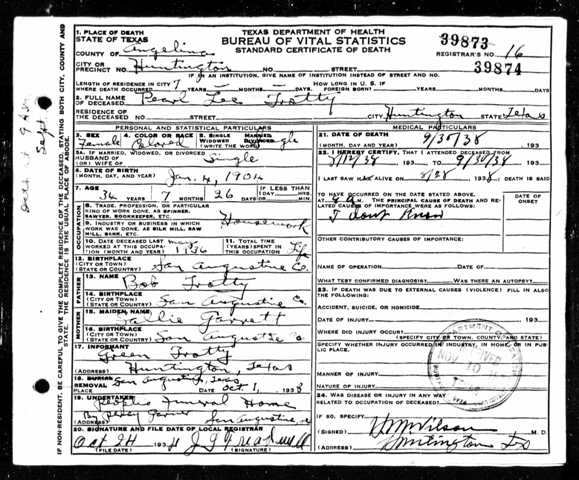 TEXAS DEPARTMENT OF HEALTH
BUREAU OF VITAL STATISTICS
STANDARD CERTIFICATE OF DEATH
39873
REGISTRAR'S NO. 16
39874
1. PLACE OF DEATH
STATE OF TEXAS
COUNTY OF Angelina
CITY OR PRECINCT NO. Huntington NO. STREET
IF IN AN INSTITUTION, GIVE NAME OF INSTITUTION INSTEAD OF STREET AND NO.
LENGTH OF RESIDENCE IN CITY WHERE DEATH OCCURRED 7 YEARS MONTHS DAYS HOW LONG IN U. S. IF FOREIGN BORN? YEARS MONTHS DAYS
2. FULL NAME OF DECEASED Pearl Lee Trotty
RESIDENCE OF THE DECEASED NO. STREET CITY Huntington STATE Texas
PERSONAL AND STATISTICAL PARTICULARS
3. SEX Female
4. COLOR OR RACE Colored
5. SINGLE MARRIED WIDOWED DIVORCED (WRITE THE WORD)
5A. IF MARRIED, WIDOWED, OR DIVORCED HUSBAND OF (OR) WIFE OF Single
6. DATE OF BIRTH (MONTH, DAY, AND YEAR) Jan. 4, 1904
7. AGE 34 YEARS 7 MONTHS 26 DAYS IF LESS THAN 1 DAY HRS. MIN.
OCCUPATION
8. TRADE, PROFESSION, OR PARTICULAR KIND OF WORK DONE, AS SPINNER, SAWYER, BOOKKEEPER, ETC. Housework
9. INDUSTRY OR BUSINESS IN WHICH WORK WAS DONE, AS SILK MILL, SAW MILL, BANK, ETC.
10. DATE DECEASED LAST WORKED AT THIS OCCUPATION (MONTH AND YEAR) 1936
11. TOTAL TIME (YEARS) SPENT IN THIS OCCUPATION Life
12. BIRTHPLACE (CITY OR TOWN) (STATE OR COUNTRY) San Augustine Co.
FATHER
13. NAME Bob Trotty
14. BIRTHPLACE (CITY OR TOWN) (STATE OR COUNTRY) San Augustine Co.
MOTHER
15. MAIDEN NAME Sallie Garrett
16. BIRTHPLACE (CITY OR TOWN) (STATE OR COUNTRY) San Augustine Co
17. INFORMANT Green Trotty
(ADDRESS) Huntington, Texas
18. BURIAL REMOVAL San Augustine, Texas Oct 1, 1938
19. UNDERTAKER Peoples Funeral Home
San Augustine
20. SIGNATURE AND FILE DATE OF LOCAL REGISTRAR
Oct 24 193
(FILE DATE) (SIGNATURE)
MEDICAL PARTICULARS
21. DATE OF DEATH (MONTH, DAY, AND YEAR) 9/30/38 193
22. I HEREBY CERTIFY THAT I ATTENDED DECEASED FROM
193 TO 9/30/38 193
I LAST SAW H ALIVE ON 193 8, DEATH IS SAID
TO HAVE OCCURRED ON THE DATE STATED ABOVE, AT M.
THE PRINCIPAL CAUSE OF DEATH AND RELATED CAUSES OF IMPORTANCE WERE AS FOLLOWS:
DATE OF ONSET
I dont Know
OTHER CONTRIBUTORY CAUSES OF IMPORTANCE:
NAME OF OPERATION DATE OF
WHAT TEST CONFIRMED DIAGNOSIS? WAS THERE AN AUTOPSY?
23. IF DEATH WAS DUE TO EXTERNAL CAUSES (VIOLENCE) FILL IN ALSO THE FOLLOWING:
ACCIDENT, SUICIDE, OR HOMICIDE
DATE OF INJURY 193
WHERE DID INJURY OCCUR?
(SPECIFY CITY OR TOWN, COUNTY AND STATE)
SPECIFY WHETHER INJURY OCCURRED IN INDUSTRY, IN HOME, OR IN PUBLIC PLACE.
MANNER OF INJURY
NATURE OF INJURY
24. WAS DISEASE OR INJURY IN ANY WAY RELATED TO OCCUPATION OF DECEASED?
IF SO, SPECIFY
(SIGNED) Wm Wilson M. D.
(ADDRESS) Huntington